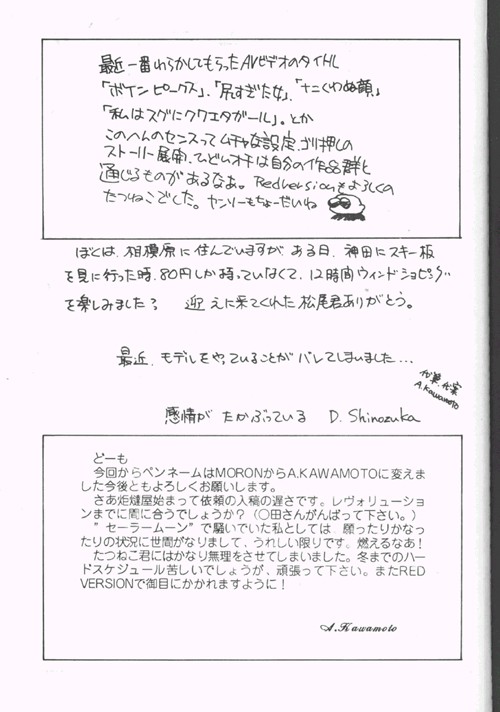 最近一番わらかしてもらったAVビデオのタイトル
「ボインピークス」、「尻すぎた女」、「ナニくわぬ顔」
「私はスグにクワエタガール」。とか
このへんのセンスってムチャな設定、ゴリ押しの
ストーリー展開、ひどいオチは自分の作品群と
通じるものがあるなあ。Redversionもよろしくの
たつねこでした。ヤンソーもちょーだいね
ぼくは、相模原に住んでいますが ある日、神田にスキー板
を見に行った時、80円しか持っていなくて、12時間ウィンドショピング
を楽しみました? 迎えに来てくれた松尾君ありがとう。
最近、モデルをやっていることがバレてしまいました…
代筆
A.Kawamoto
感情が たかぶっている D. Shinozuka
どーも
今回からペンネームはMORONからA.KAWAMOTOに変えま
した今後ともよろしくお願いします。
さあ炬燵屋始まって依頼の入稿の遅さです。レヴォリューショ
ンまでに間に合うでしょうか?（〇田さんがんばって下さい。）
”セーラームーン”で騒いでいた私としては 願ったりかなっ
たりの状況に世間がなりまして、うれしい限りです。燃えるなあ！
たつねこ君にはかなり無理をさせてしまいました。冬までのハー
ドスケジュール苦しいでしょうが、頑張って下さい。またRED
VERSIONで御目にかかれますように！
A.Kawamoto